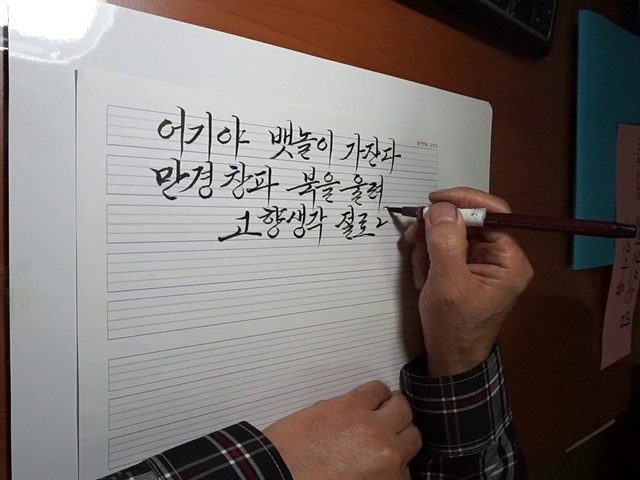 어기야 뱃놀이 가잔다
만경창파 북을 울려
고향생각 절로 ㄴ